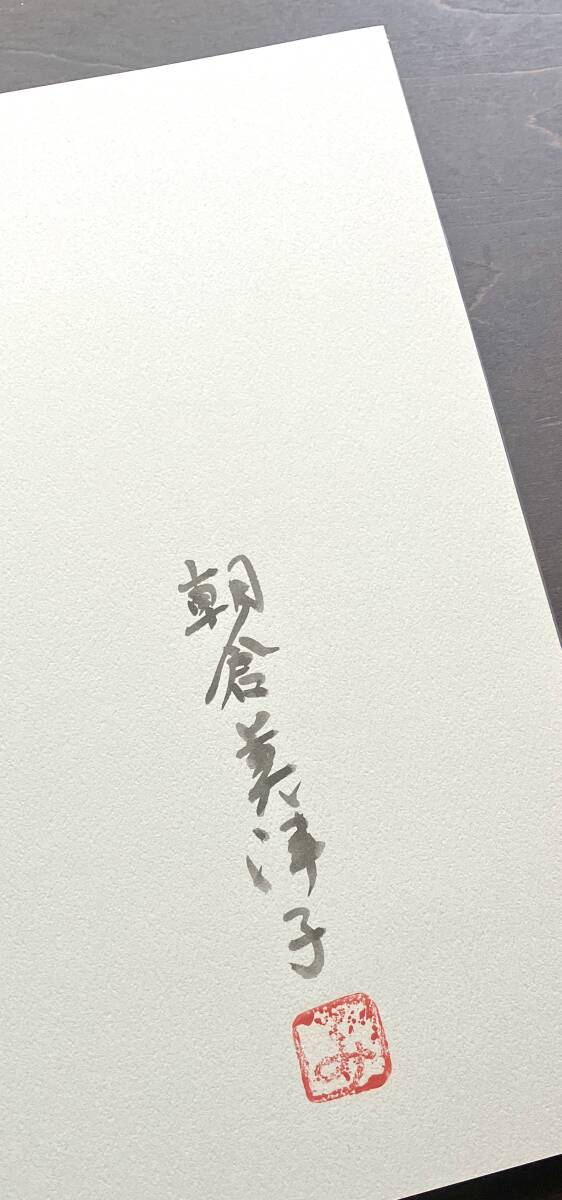 朝倉美津子